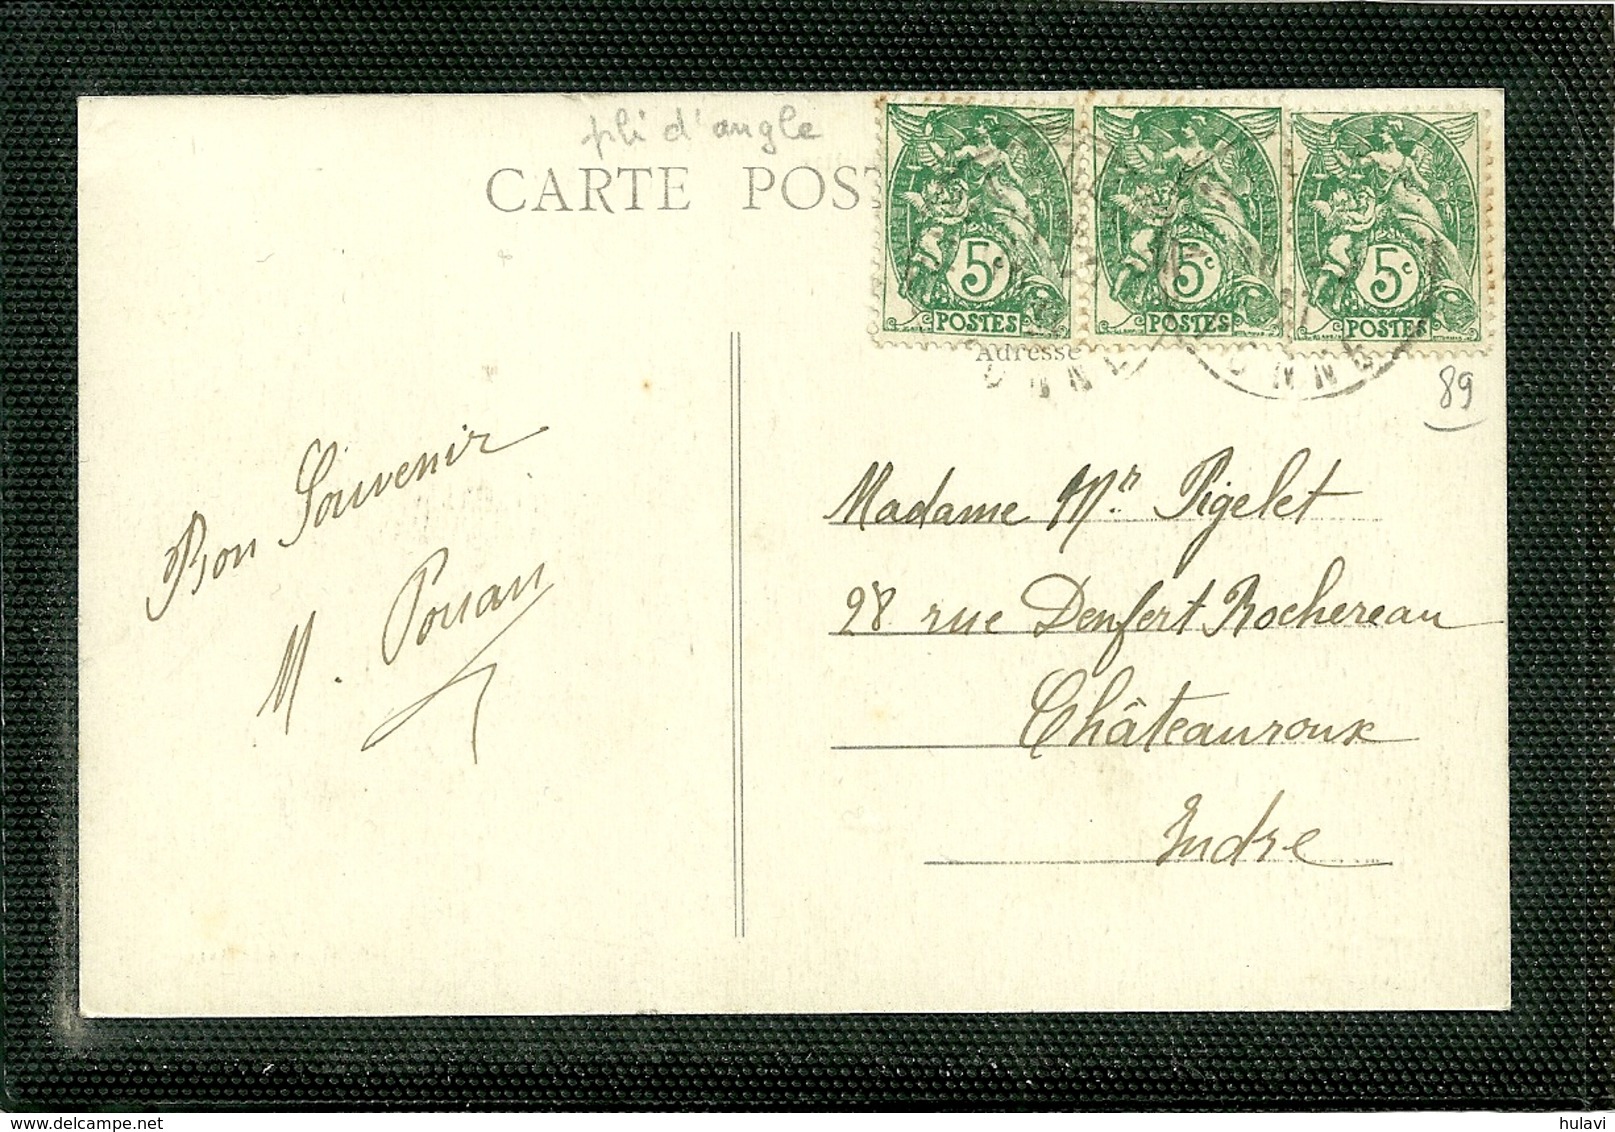 pli d'angle
CARTE POST
5c
POSTES
5c
POSTES
5c
POSTES
Adresse
89
Bon Souvenir
Madame Mr. Pigelet
28 rue Denfert Rochereau
Châteauroux
Indre
hulavi